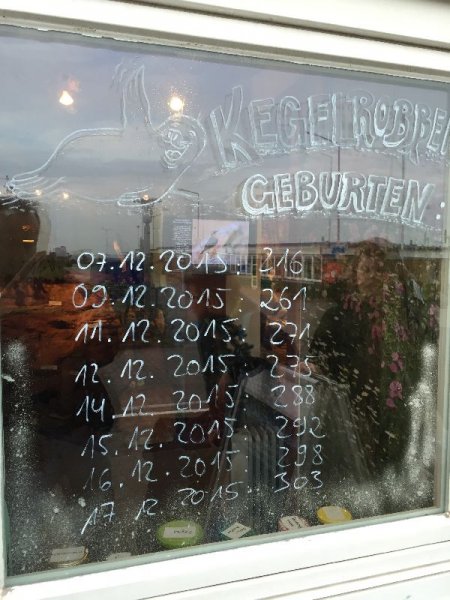 KEGELROBBEN
GEBURTEN:
07.12.2015: 216
09.12.2015: 261
11.12.2015: 271
12.12.2015: 275
14.12.2015: 288
15.12.2015: 292
16.12.2015: 298
17.12.2015: 303